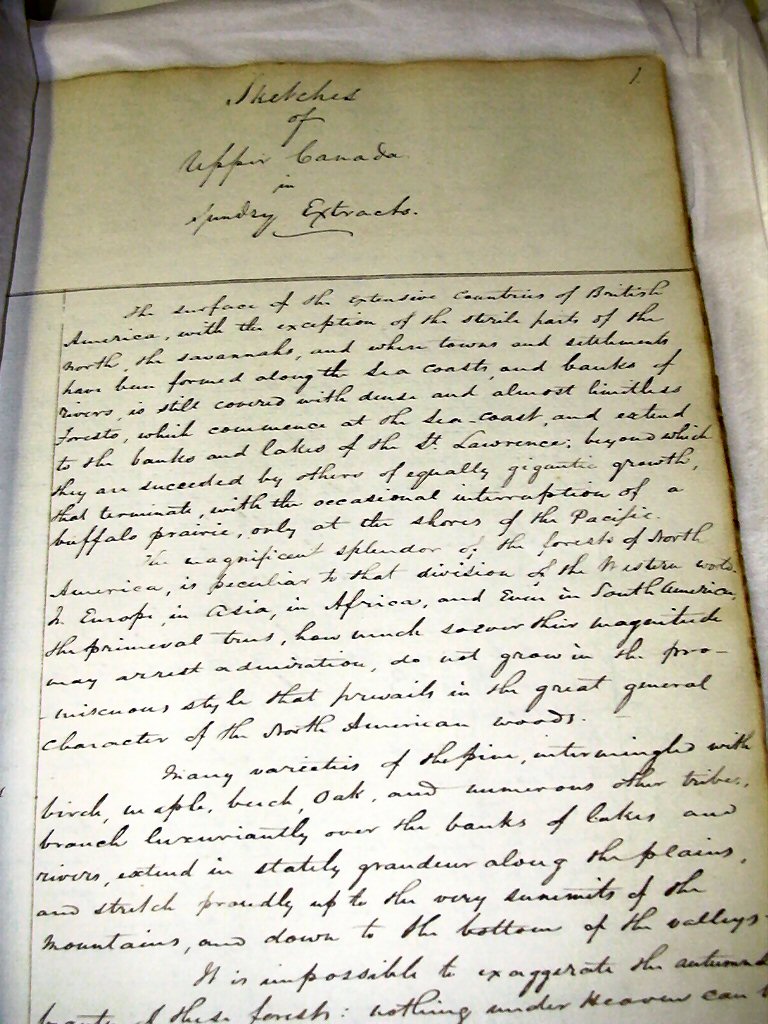 1
Sketches
of
Upper Canada
in
Sundry Extracts.
The surface of the extensive countries of British
America, with the exception of the sterile parts of the
north, the savannahs, and where towns and settlements
have been formed along the sea coasts, and banks of
rivers, is still covered with dense and almost limitless
forests, which commence at the sea-coast, and extend
to the banks and lakes of the St. Lawrence; beyond which
they are succeeded by others of equally gigantic growth,
that terminate, with the occasional interruption of a
buffalo prairie, only at the shores of the Pacific.
The magnificent splendor of the forests of North
America, is peculiar to that division of the Western world.
In Europe, in Asia, in Africa, and Even in South America,
the primeval trees, how much soever their magnitude
may arrest admiration, do not grow in the pro-
-miscuous style that prevails in the great general
character of the North American woods.
Many varieties of the pine, intermingled with
birch, maple, beech, Oak, and numerous other tribes,
branch luxuriantly over the banks of lakes and
rivers, extend in stately grandeur along the plains,
and stretch proudly up to the very summits of the
mountains, and down to the bottom of the valleys.
It is impossible to exaggerate the autumnal
beauty of these forests: nothing under Heaven can